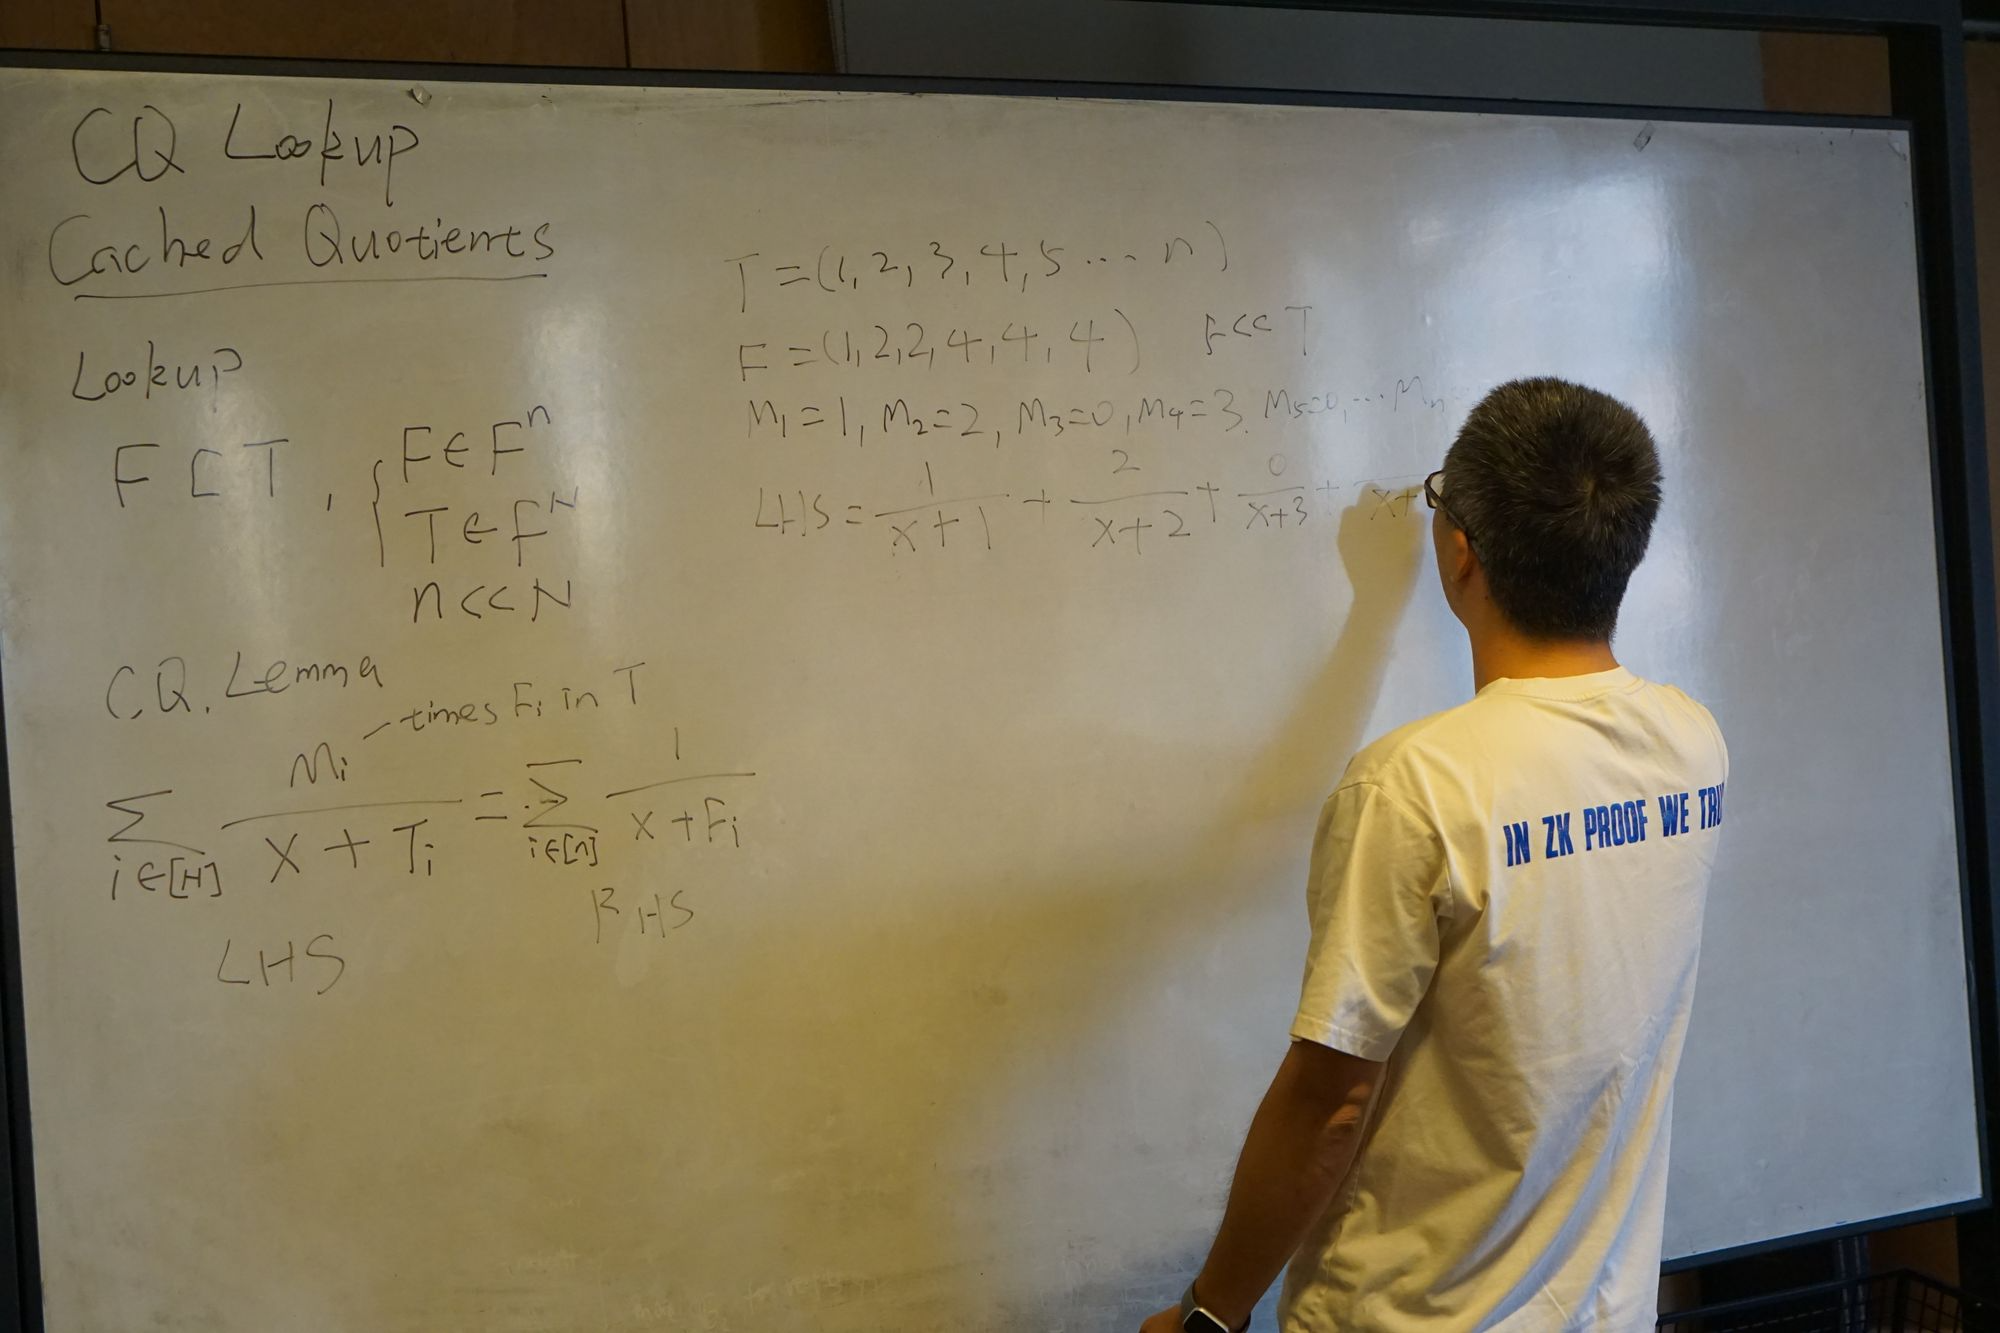 CQ Lookup
Cached Quotients
Lookup
F ⊂ T, { F ∈ F^n
T ∈ F^N
n << N
C.Q. Lemma
∑ i∈[N] Mi / (x + Ti) = ∑ i∈[n] 1 / (x + Fi)
times Fi in T
LHS
RHS
T = (1, 2, 3, 4, 5 ... n)
F = (1, 2, 2, 4, 4, 4) F << T
M1 = 1, M2 = 2, M3 = 0, M4 = 3. M5 = 0, ... Mn
LHS = 1 / (x + 1) + 2 / (x + 2) + 0 / (x + 3) + / x +
IN ZK PROOF WE TRU